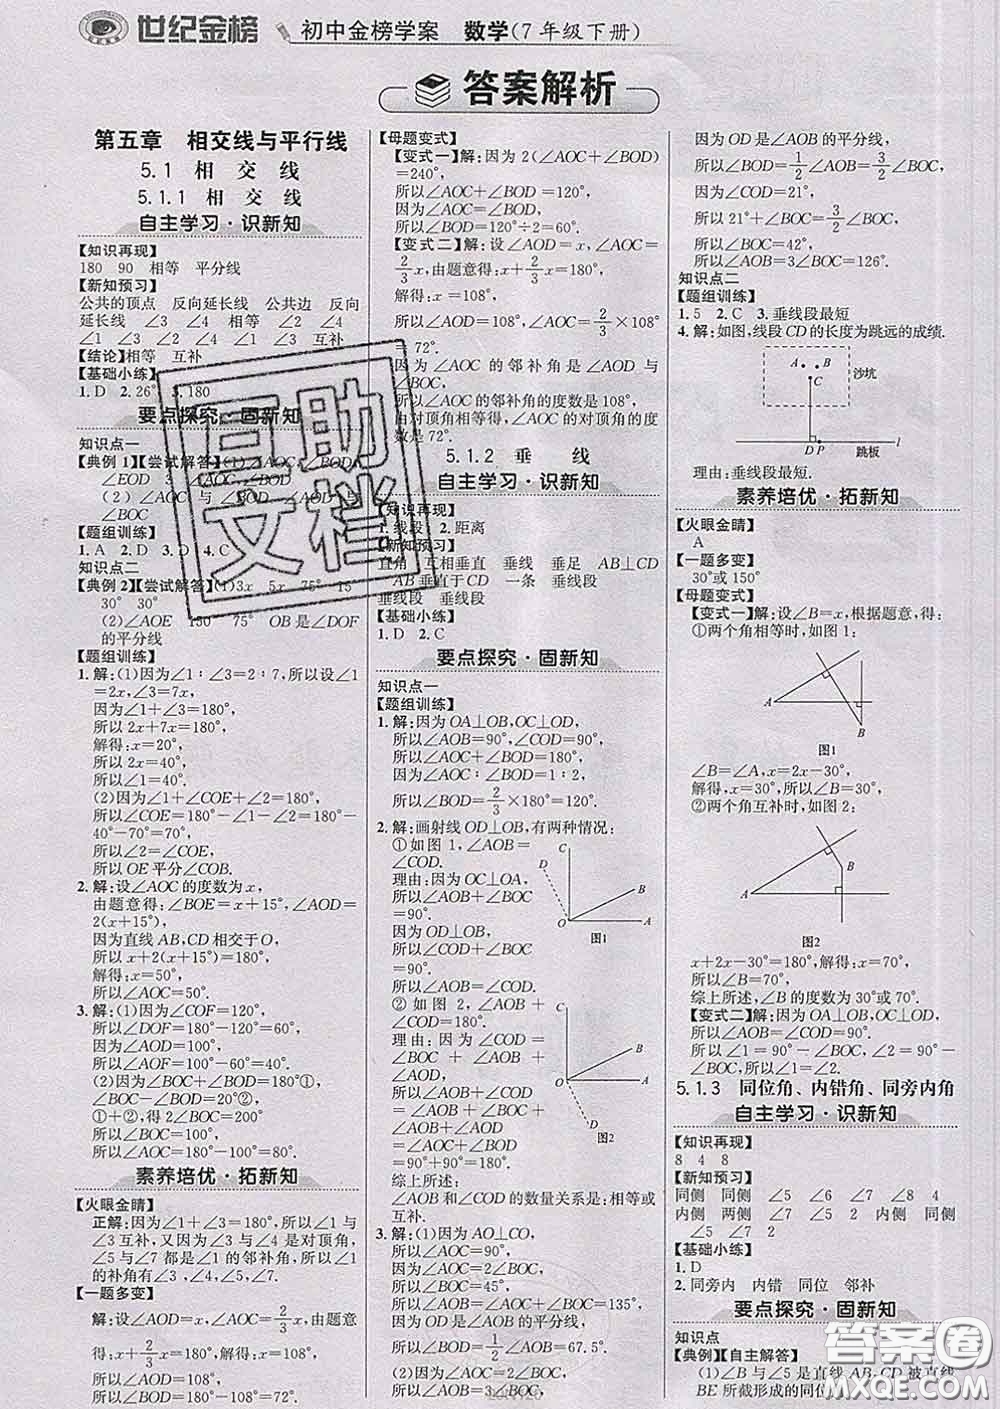 世纪金榜 初中金榜学案 数学(7年级下册)
答案解析
第五章 相交线与平行线
5.1 相交线
5.1.1 相交线
自主学习·识新知
【知识再现】
180 90 相等 平分线
【新知预习】
公共的顶点 反向延长线 公共边 反向
延长线 ∠3 ∠4 相等 ∠2 ∠4
∠2 ∠4 ∠1 ∠3 ∠1 ∠3 互补
【结论】相等 互补
【基础小练】
1. D 2. 26° 3. 180
要点探究·固新知
知识点一
【典例1】【尝试解答】(1)∠AOC,∠BOD
∠EOD 3
(2) ∠AOC 与 ∠BOD
∠BOC
【题组训练】
1. A 2. D 3. D 4. C
知识点二
【典例2】【尝试解答】(1)3x 5x 75° 15
30° 30°
(2)∠AOE 150 75° OB是∠DOF
的平分线
【题组训练】
1. 解:(1)因为∠1∶∠3=2∶7,所以设∠1
=2x,∠3=7x,
因为∠1+∠3=180°,
所以2x+7x=180°,
解得:x=20°,
所以2x=40°,
所以∠1=40°.
(2)因为∠1+∠COE+∠2=180°,
所以∠COE=180°-∠1-∠2=180°-
40°-70°=70°,
所以∠2=∠COE,
所以OE平分∠COB.
2. 解:设∠AOC的度数为x,
由题意得:∠BOE=x+15°,∠AOD=
2(x+15°),
因为直线AB,CD相交于O,
所以x+2(x+15°)=180°,
解得:x=50°,
所以∠AOC=50°.
3. 解:(1)因为∠COF=120°,
所以∠DOF=180°-120°=60°,
因为∠AOD=100°,
所以∠AOF=100°-60°=40°.
(2)因为∠BOC+∠BOD=180°①,
∠BOC-∠BOD=20°②,
①+②得2∠BOC=200°,
所以∠BOC=100°,
所以∠AOC=180°-100°=80°.
素养培优·拓新知
【火眼金睛】
正解:因为∠1+∠3=180°,所以∠1与
∠3互补,又因为∠3与∠4是对顶角,
∠5与∠7都是∠1的邻补角,所以∠1
的补角有∠3,∠4,∠5,∠7.
【一题多变】
解:设∠AOD=x,∠AOC=2/3x,由题意
得:x+2/3x=180°,解得:x=108°,
所以∠AOD=108°,
所以∠BOD=180°-108°=72°.
【母题变式】
【变式一】解:因为2(∠AOC+∠BOD)
=240°,
所以∠AOC+∠BOD=120°,
因为∠AOC=∠BOD,
所以∠BOD=120°÷2=60°.
【变式二】解:设∠AOD=x,∠AOC=
2/3x,由题意得:x+2/3x=180°,
解得:x=108°,
所以∠AOD=108°,∠AOC=2/3×108°
=72°.
因为∠AOC的邻补角是∠AOD与
∠BOC,
所以∠AOC的邻补角的度数是108°.
由对顶角相等,∠AOC的对顶角的度
数是72°.
5.1.2 垂线
自主学习·识新知
【知识再现】
1. 线段 2. 距离
【新知预习】
直角 互相垂直 垂线 垂足 AB⊥CD
AB垂直于CD 一条 垂线段
垂线段 垂线段
【基础小练】
1. D 2. C
要点探究·固新知
知识点一
【题组训练】
1. 解:因为OA⊥OB,OC⊥OD,
所以∠AOB=90°,∠COD=90°,
所以∠AOC+∠BOD=180°,
因为∠AOC∶∠BOD=1∶2,
所以∠BOD=2/3×180°=120°.
2. 解:画射线OD⊥OB,有两种情况:
①如图1,∠AOB=
∠COD.
理由:因为OC⊥OA,
所以∠AOB+∠BOC
=90°.
因为OD⊥OB,
所以∠COD+∠BOC
=90°,
所以∠AOB=∠COD.
② 如图2,∠AOB+
∠COD=180°.
图1
图2
综上所述:
∠AOB和∠COD的数量关系是:相等或
互补.
3. 解:(1)因为AO⊥CO,
所以∠AOC=90°,
因为∠AOC=2∠BOC,
所以∠BOC=45°,
所以∠AOB=∠AOC+∠BOC=135°,
因为OD是∠AOB的平分线,
所以∠BOD=1/2∠AOB=67.5°.
(2)因为∠AOC=2∠BOC,
因为OD是∠AOB的平分线,
所以∠BOD=1/2∠AOB=3/2∠BOC,
因为∠COD=21°,
所以21°+∠BOC=3/2∠BOC,
所以∠BOC=42°,
所以∠AOB=3∠BOC=126°.
知识点二
【题组训练】
1. 5 2. C 3. 垂线段最短
4. 解:如图,线段CD的长度为跳远的成绩.
A B
C 沙坑
D P 跳板 l
理由:垂线段最短.
素养培优·拓新知
【火眼金睛】
A
【一题多变】
30°或150°
【母题变式】
【变式一】解:设∠B=x,根据题意,得:
①两个角相等时,如图1:
A B
图1
∠B=∠A,x=2x-30°,
解得,x=30°,所以∠B=30°,
②两个角互补时,如图2:
A
图2
x+2x-30°=180°,解得:x=70°,
所以∠B=70°,
综上所述,∠B的度数为30°或70°.
【变式二】解:因为OA⊥OB,OC⊥OD,
所以∠AOB=∠COD=90°,
所以∠1=90°-∠BOC,∠2=90°-
∠BOC,所以∠1=∠2.
5.1.3 同位角、内错角、同旁内角
自主学习·识新知
【知识再现】
8 4 8
【新知预习】
同侧 同侧 ∠5 ∠6 ∠7 ∠8 4
内侧 两侧 ∠5 ∠2 2 内侧 同侧
∠5 ∠7 2
【基础小练】
1. D
2. 同旁内 内错 同位 邻补
要点探究·固新知
知识点
【典例】【自主解答】(1)∠B与∠5是直线AB,CD被直线
BE所截形成的同位
互助文档
答案圈
MXQE.COM